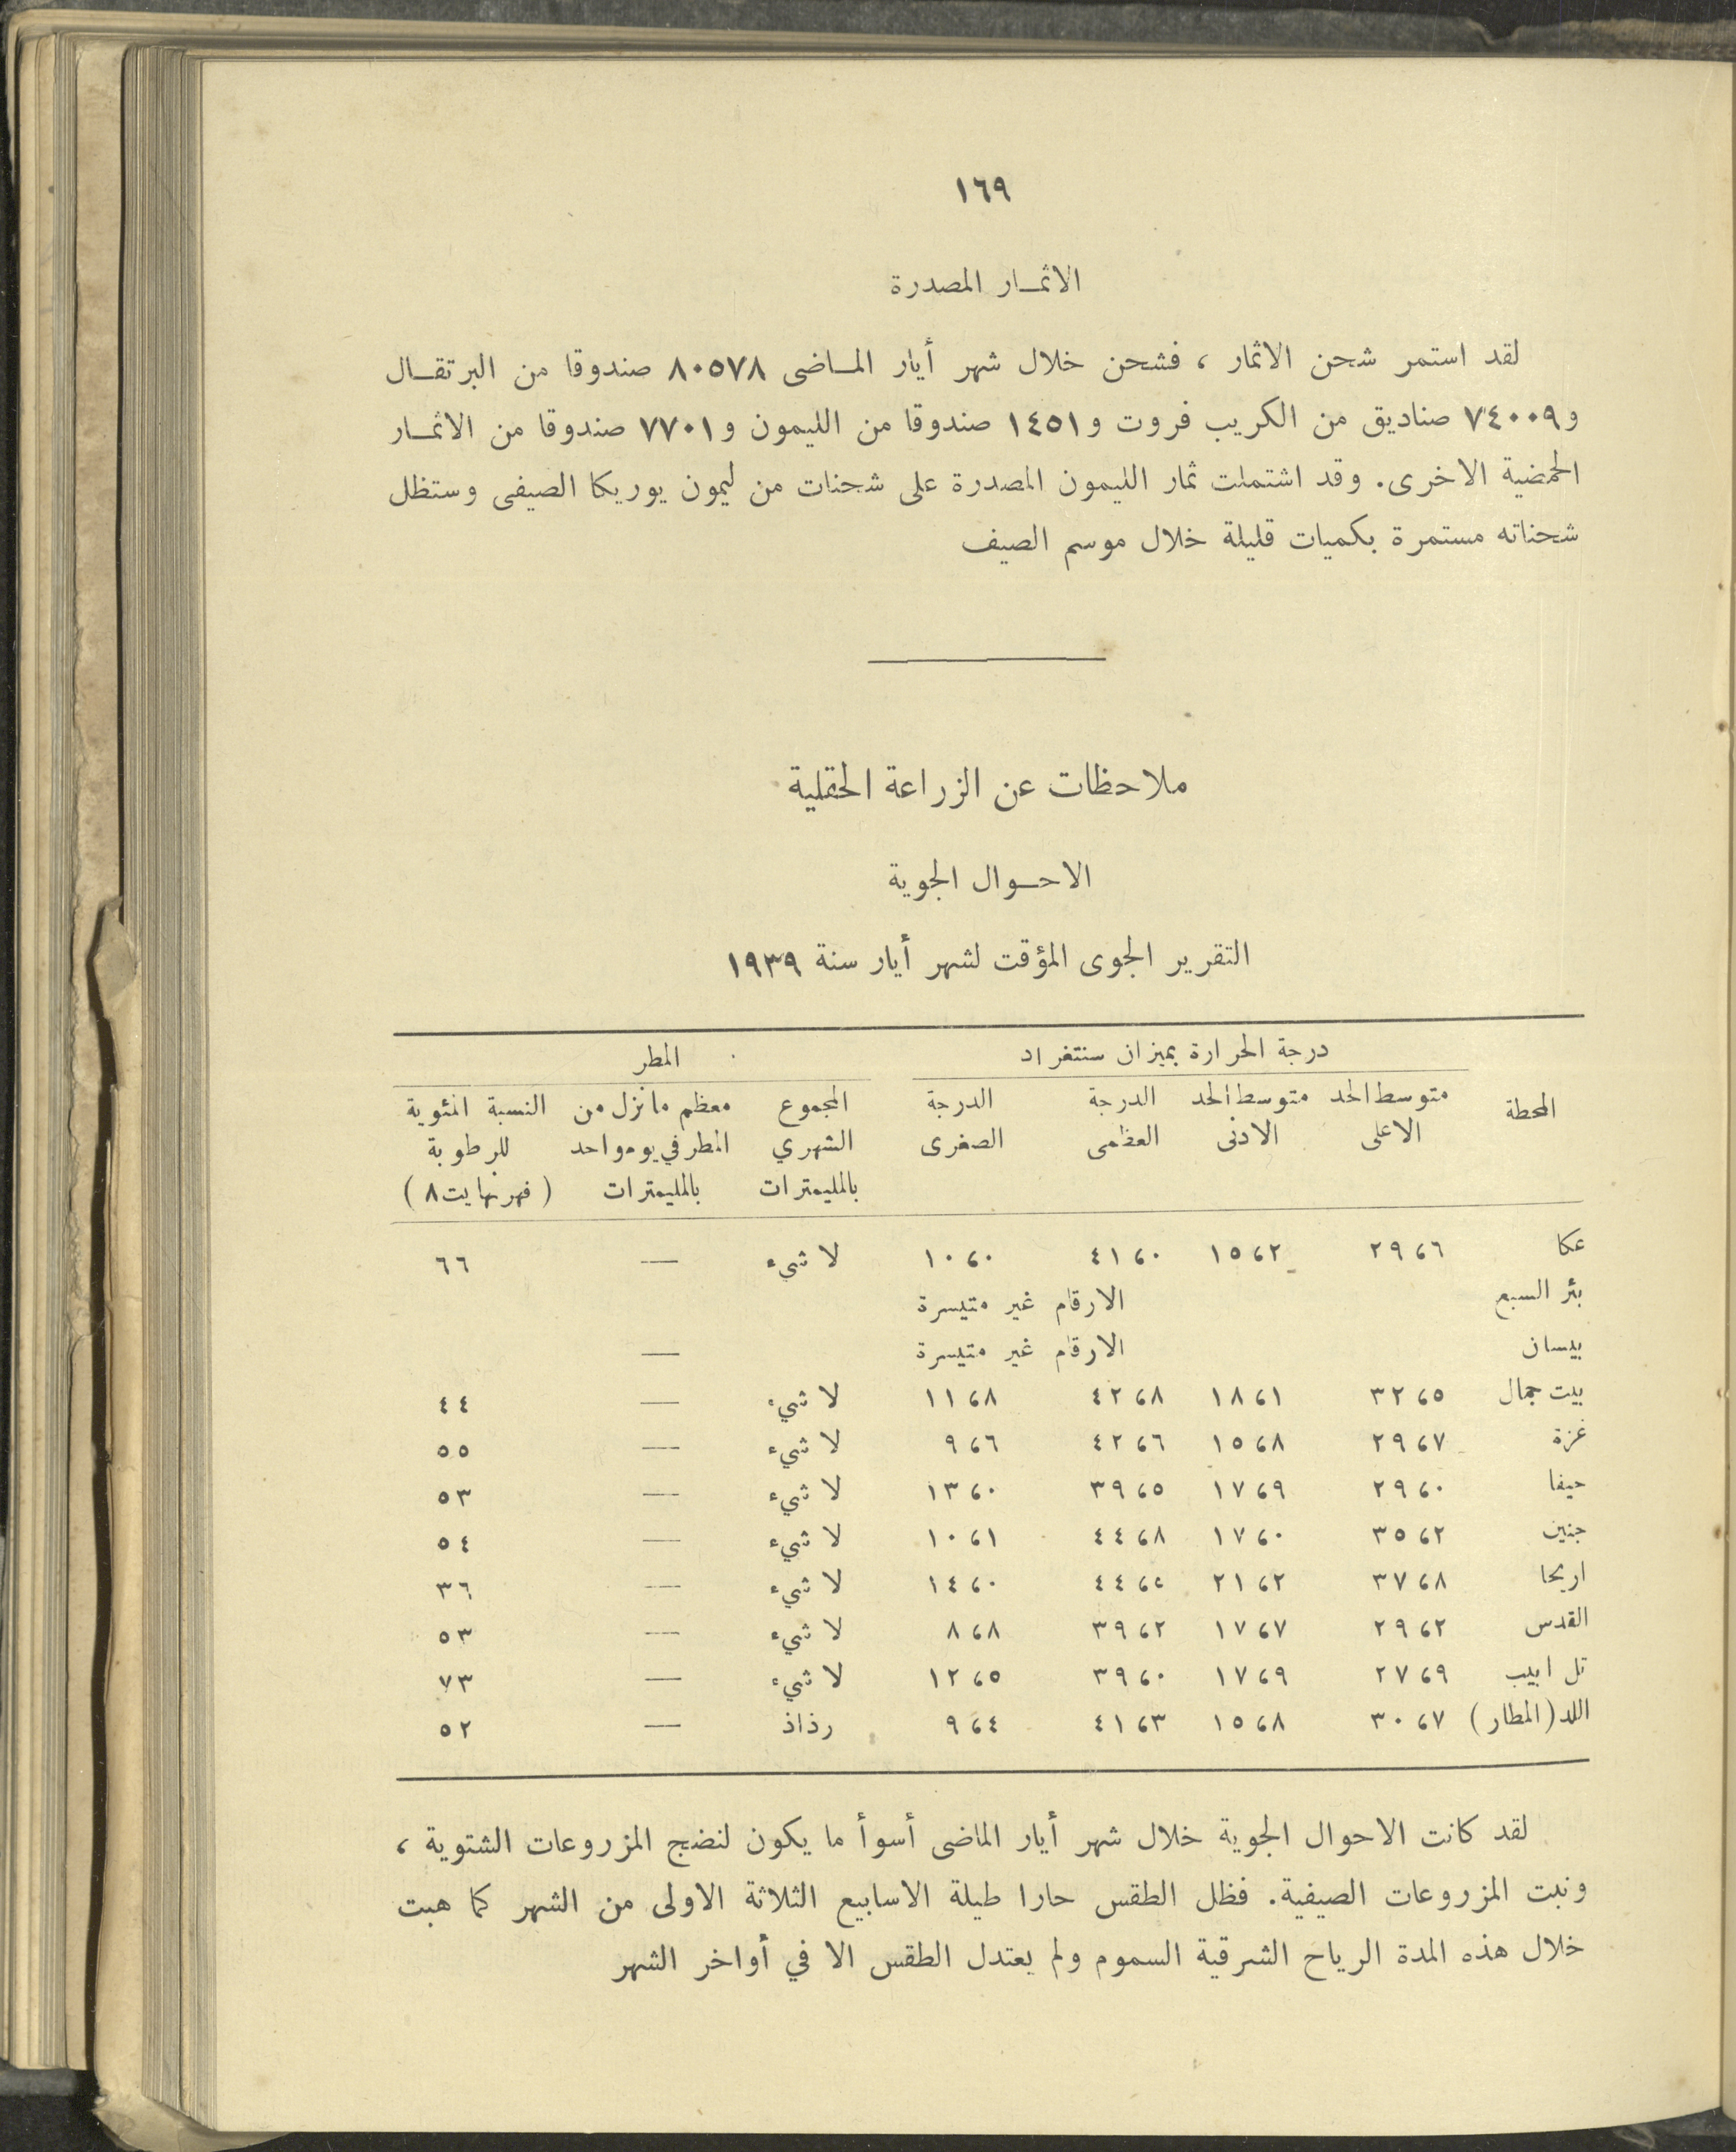 ١٦٩
الاثمـار المصدرة
لقد استمر شحن الاثمار ، فشحن خلال شهر أيار المـاضى ٨٠٥٧٨ صندوقا من البرتقـال
و٧٤٠٠٩ صناديق من الكريب فروت و١٤٥١ صندوقا من الليمون و٧٧٠١ صندوقا من الاثمـار
الحمضية الاخرى. وقد اشتملت ثمار الليمون المصدرة على شحنات من ليمون يوريكا الصيفى وستظل
شحناته مستمرة بكميات قليلة خلال موسم الصيف
ملاحظات عن الزراعة الحقلية
الاحـوال الجوية
التقرير الجوى المؤقت لشهر أيار سنة ١٩٣٩
درجة الحرارة بميزان سنتغراد المطر
المحطة متوسط الحد متوسط الحد الدرجة الدرجة المجموع معظم مانزل من النسبة المئوية
الاعلى الادنى العظمى الصغرى الشهري المطر في يوم واحد للرطوبة
بالمليمترات بالمليمترات (فهرنهايت ٨)
عكا ٢٩،٦ ١٥،٢ ٤١،٠ ١٠،٠ لا شيء — ٦٦
بئر السبع الارقام غير متيسرة
بيسان الارقام غير متيسرة —
بيت جمال ٣٢،٥ ١٨،١ ٤٢،٨ ١١،٨ لا شيء — ٤٤
غزة ٢٩،٧ ١٥،٨ ٤٢،٦ ٩،٦ لا شيء — ٥٥
حيفا ٢٩،٠ ١٧،٩ ٣٩،٥ ١٣،٠ لا شيء — ٥٣
جنين ٣٥،٢ ١٧،٠ ٤٤،٨ ١٠،١ لا شيء — ٥٤
اريحا ٣٧،٨ ٢١،٢ ١٤،٠ لا شيء — ٣٦
القدس ٢٩،٢ ١٧،٧ ٣٩،٢ ٨،٨ لا شيء — ٥٣
تل ابيب ٢٧،٩ ١٧،٩ ٣٩،٠ ١٢،٥ لا شيء — ٧٣
اللد (المطار) ٣٠،٧ ١٥،٨ ٤١،٣ ٩،٤ رذاذ — ٥٢
لقد كانت الاحوال الجوية خلال شهر أيار الماضى أسوأ ما يكون لنضج المزروعات الشتوية ،
ونبت المزروعات الصيفية. فظل الطقس حارا طيلة الاسابيع الثلاثة الاولى من الشهر كما هبت
خلال هذه المدة الرياح الشرقية السموم ولم يعتدل الطقس الا في أواخر الشهر